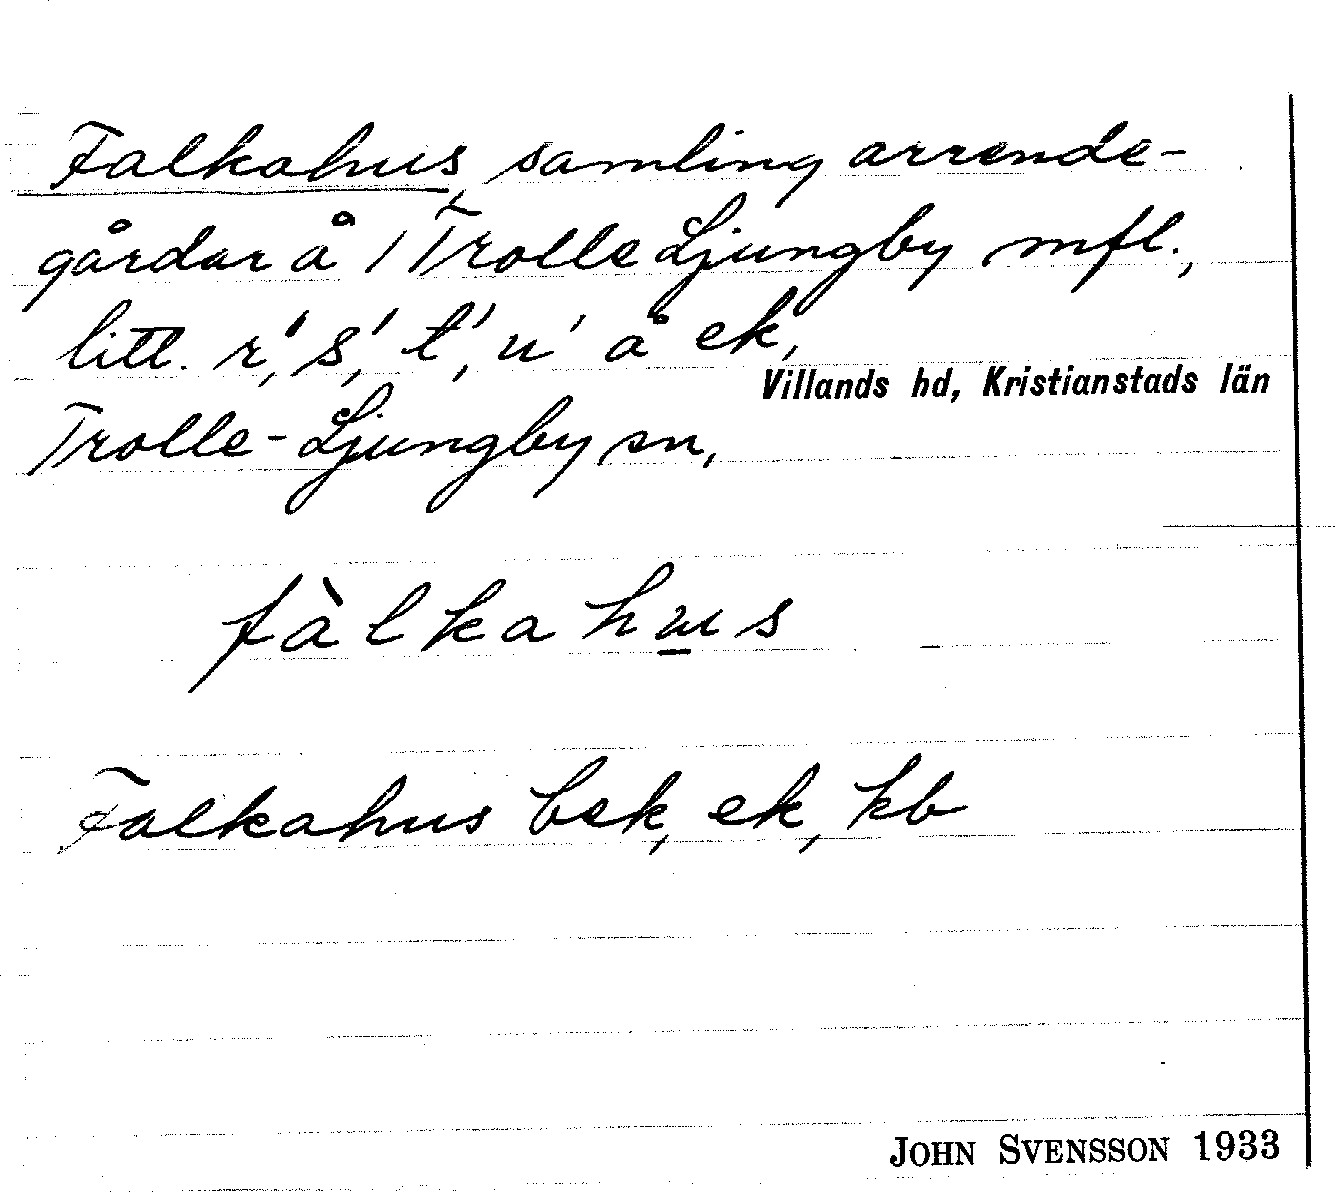 Falkahus, samling arrende-
gårdar å 1 Trolle Ljungby mfl.,
litt. r', s', t', u' å ek,
Villands hd, Kristianstads län
Trolle-Ljungby sn,
fàlkahus
Falkahus bek, ek, kb
JOHN SVENSSON 1933